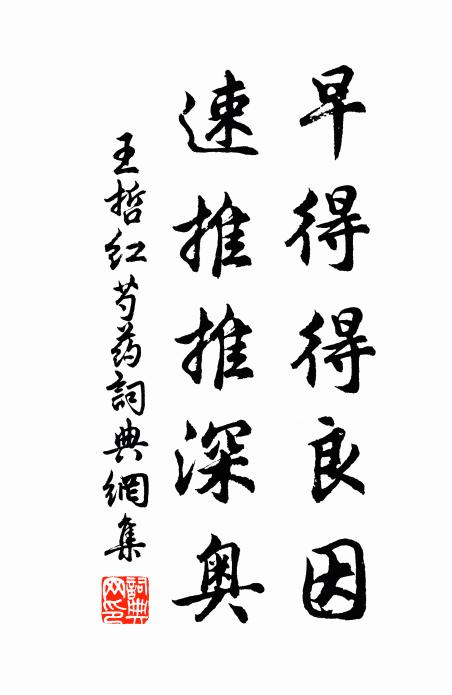 早得得良因
速推推深奥
王哲红芍药詞典網集
詞典网印